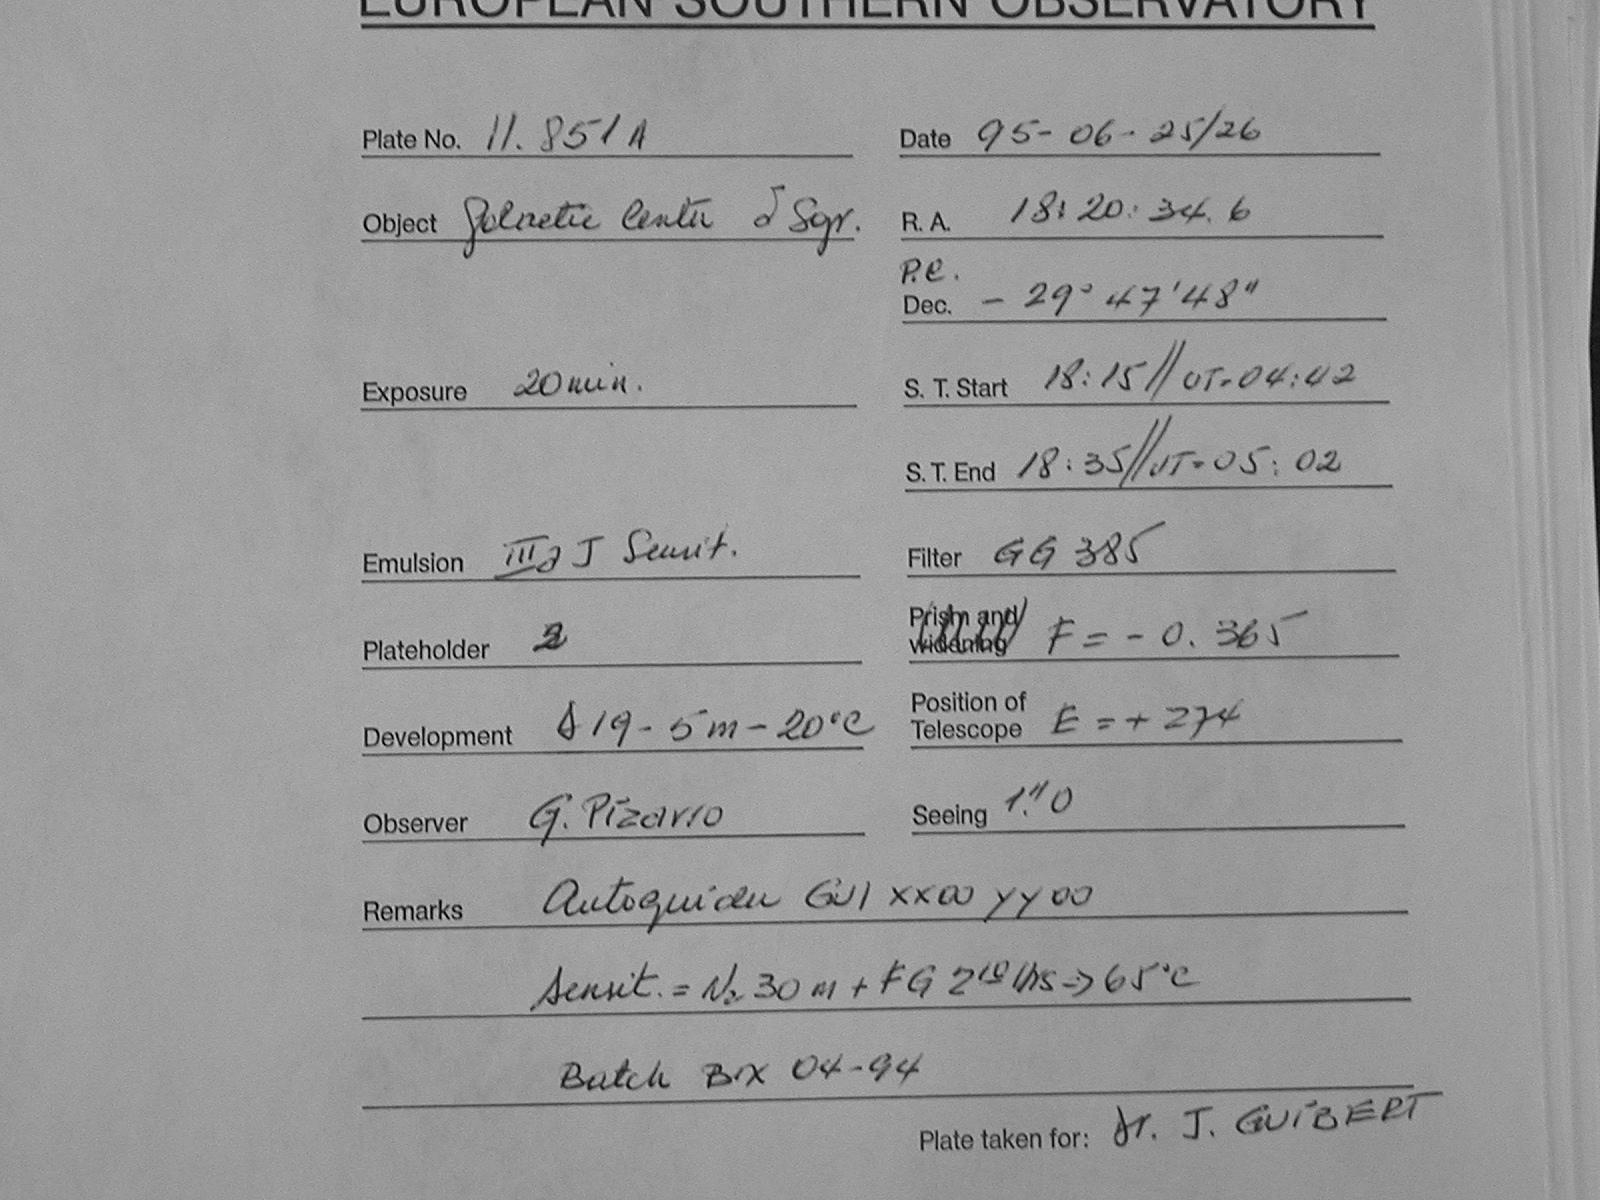 EUROPEAN SOUTHERN OBSERVATORY
Plate No. 11.851A Date 95-06-25/26
Object Galactic Center δ Sgr. R. A. 18:20:34.6
P.e.
Dec. -29°47'48"
Exposure 20min. S. T. Start 18:15//UT=04:42
S. T. End 18:35//UT=05:02
Emulsion IIIa J Sensit. Filter GG 385
Plateholder 2 Prism and widening F = -0.365
Development D19-5m-20°C Position of Telescope E = +274
Observer G. Pizarro Seeing 1."0
Remarks Autoguider GU1 XX00 YY00
Sensit. = N2 30m + FG hrs => 65°C
Batch Box 04-94
Plate taken for: Dr. J. GUIBERT